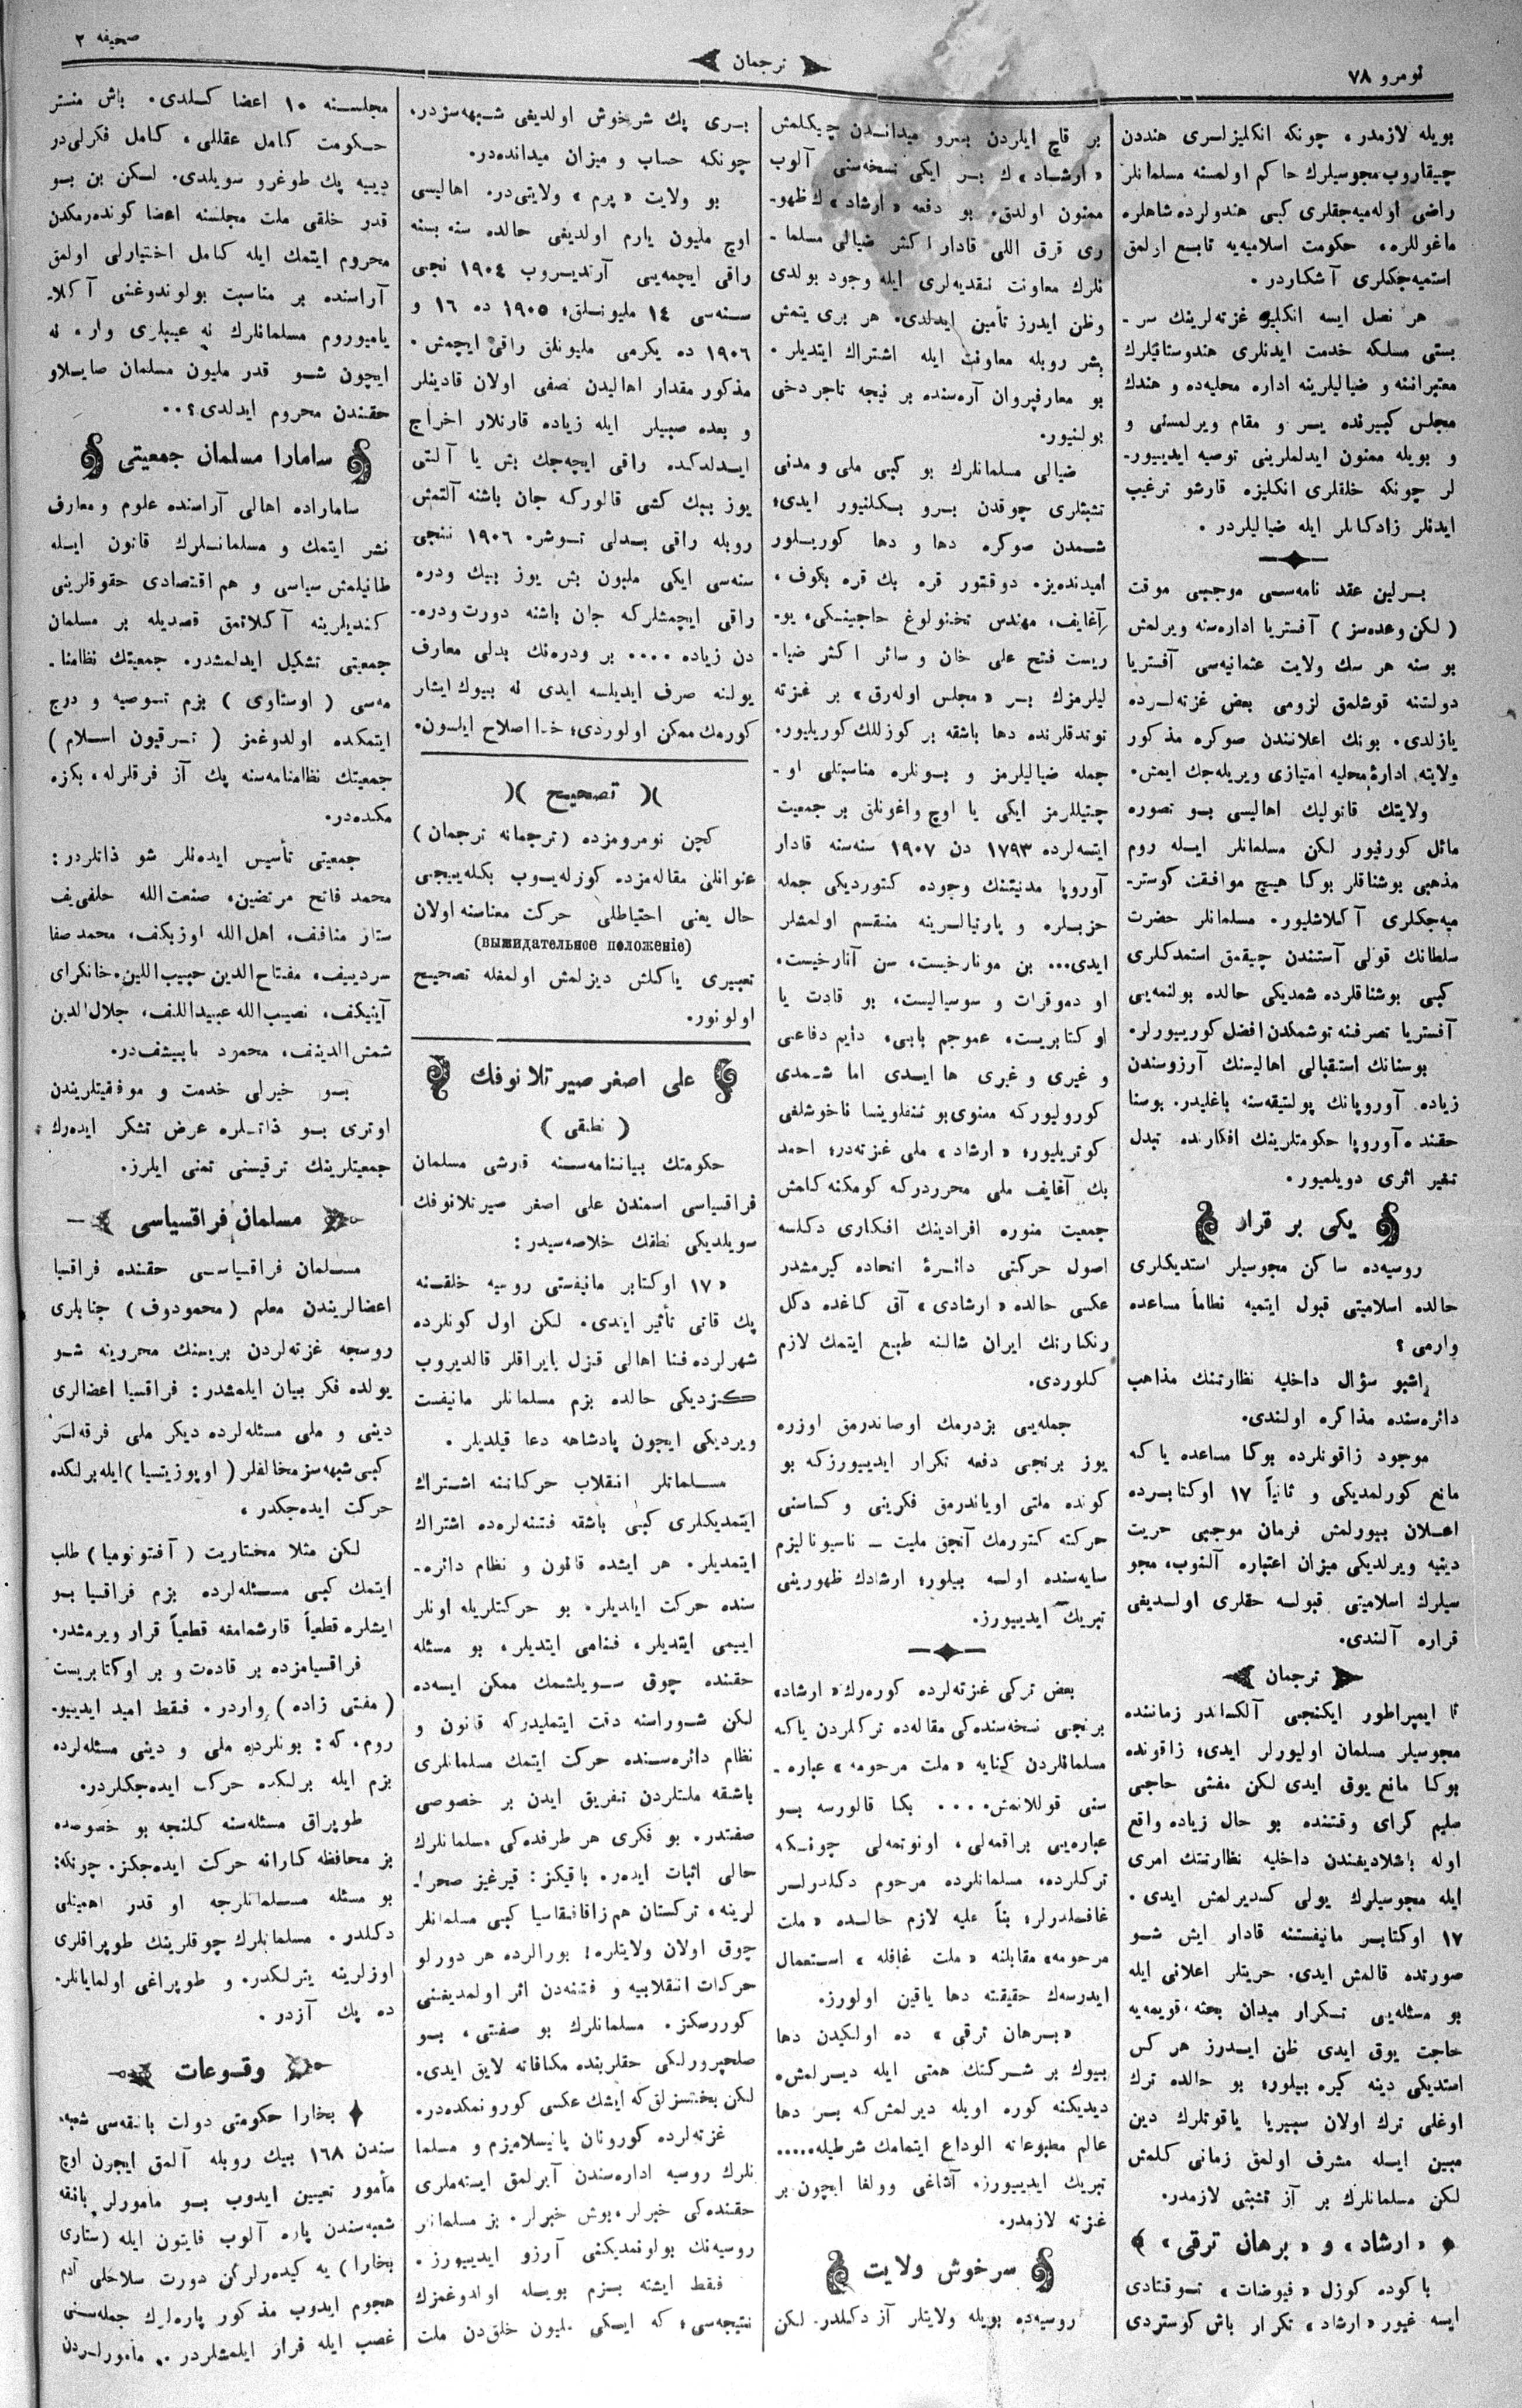 نومرو ٧٨
ترجمان
صحیفه ٢
بویله لازمدر، چونکه انکلیزلری هنددن
چیقاروب مجوسیلرك حاکم اولمسنه مسلمانلر
راضی اوله‌میه‌جقلری کبی هندولرده شاهلره
ماغوللره، حکومت اسلامیه‌یه تابع اولمق
استمیه‌جکلری آشکاردر.
هر نصل ایسه انکلیز غزته‌لرینك سر‌ـ
بستی مسلکه خدمت ایدنلری هندوستانیلرك
معتبراننه و ضیالیلرینه اداره محلیه‌ده و هندك
مجلس کبیرنده یر و مقام ویرلمسنی و
و بویله ممنون ایدلملرینی توصیه ایدییور‌ـ
لر چونکه خلقلری انکلیزه قارشو ترغیب
ایدنلر زادکانلر ایله ضیالیلردر.
برلین عقد نامه‌سی موجبی موقت
(لکن وعده‌سز) آفستریا اداره‌سنه ویرلمش
بو سنه هر سك ولایت عثمانیه‌سی آفستریا
دولتنه قوشلمق لزومی بعض غزته‌لرده
یازلدی. بونك اعلانندن صوکره مذکور
ولایته ادارۀ محلیه امتیازی ویریله‌جك ایمش.
ولایتك قاتولیك اهالیسی بو تصوره
مائل کورنیور لکن مسلمانلر ایله روم
مذهبی بوشناقلر بوکا هیچ موافقت کوستر‌ـ
میه‌جکلری آکلاشلیور. مسلمانلر حضرت
سلطانك قولی آستندن چیقمق استمدکلری
کبی بوشناقلرده شمدیکی حالده بولنمه‌یی
آفستریا تصرفنه توشمکدن افضل کوریبورلر.
بوسنانك استقبالی اهالیسنك آرزوسندن
زیاده آوروپانك پولتیقه‌سنه باغلیدر. بوسنا
حقنده آوروپا حکومتلرینك افکارنده تبدل
تغیر اثری دویلمیور.
یکی بر قرار
روسیه‌ده ساکن مجوسیلر استدیکلری
حالده اسلامیتی قبول ایتمیه نظاماً مساعده
وارمی؟
اشبو سؤال داخلیه نظارتنك مذاهب
دائره‌سنده مذاکره اولندی.
موجود زاقونلرده بوکا مساعده یا که
مانع کورلمدیکی و ثانیاً ١٧ اوکتابرده
اعلان بیورلمش فرمان موجبی حریت
دینیه ویرلدیکی میزان اعتباره آلنوب، مجو
سیلرك اسلامیتی قبوله حقلری اولدیغی
قراره آلندی.
ترجمان
تا ایمپراطور ایکنجی آلکساندر زماننده
مجوسیلر مسلمان اولیورلر ایدی؛ زاقونده
بوکا مانع یوق ایدی لکن مفتی حاجی
سلیم کرای وقتنده بو حال زیاده واقع
اوله باشلادیغندن داخلیه نظارتنك امری
ایله مجوسیلرك یولی کسدیرلمش ایدی.
١٧ اوکتابر مانیفستنه قادار ایش شو
صورتده قالمش ایدی. حریتلر اعلانی ایله
بو مسئله‌یی تکرار میدان بحثه قویمه‌یه
حاجت یوق ایدی ظن ایدرز هر کس
استدیکی دینه کیره بیلور؛ بو حالده ترك
اوغلی ترك اولان سیبیریا یاقوتلرك دین
مبین ایسله مشرف اولمق زمانی کلمش
لکن مسلمانلرك بر آز تشبثی لازمدر.
«ارشاد» و «برهان ترقی»
باکوده کوزل «فیوضات» توقتادی
ایسه غیور «ارشاد» تکرار باش کوستردی
بر قاچ ایلردن بیرو میداندن چیکلمش
«ارشاد» ك بر ایکی نسخه‌سنی آلوب
ممنون اولدق. بو دفعه «ارشاد» ك ظهو‌ـ
ری قرق اللی قادار اکثر ضیالی مسلما‌ـ
نلرك معاونت نقدیه‌لری ایله وجود بولدی
وظن ایدرز تأمین ایدلدی. هر بری یتمش
بشر روبله معاونت ایله اشتراك ایتدیلر.
بو معارفپروان آره‌سنده بر نیجه تاجر دخی
بولنیور.
ضیالی مسلمانلرك بو کبی ملی و مدنی
تشبثلری چوقدن برو بکلنیور ایدی؛
شمدن صوکره دها و دها کوریلور
امیدنده‌یز. دوقتور قره بك قره بکوف،
آغایف، مهندس تخنولوغ حاجینسکی، یو‌ـ
ریست فتح علی خان و سائر اکثر ضیا‌ـ
لیلرمزك بر «مجلس اوله‌رق» بر غزته
توندقلرنده دها باشقه بر کوزللك کوریلیور.
جمله ضیالیلرمز و بونلره مناسبتلی او‌ـ
چتیللرمز ایکی یا اوچ واغونلق بر جمعیت
ایتسه‌لرده ١٧٩٣ دن ١٩٠٧ سنه‌سنه قادار
آوروپا مدنیتنك وجوده کتوردیکی جمله
حزبلره و پارتیالرینه منقسم اولمشلر
ایدی... بن مونارخیست، سن آنارخیست،
او دموقرات و سوسیالیست، بو قادت یا
اوکتابریست، عموجم بابی، دایم دفاعی
و غیری و غیری ها ایدی اما شمدی
کورولیورکه معنوی بو ئنفلوینسا ناخوشلغی
کوتریلیور؛ «ارشاد» ملی غزته‌در؛ احمد
بك آغایف ملی محرردرکه کومکنه کلمش
جمعیت منوره افرادینك افکاری دکلسه
اصول حرکتی دائرۀ اتحاده کیرمشدر
عکسی حالده «ارشادی» آق کاغده دکل
رنکارنك ایران شالنه طبع ایتمك لازم
کلوردی.
جمله‌یی بزدرمك اوصاندرمق اوزره
یوز برنجی دفعه تکرار ایدیبورزکه بو
کونده ملتی اویاندرمق فکرینی و کساسنی
حرکته کتورمك آنجق ملیت ــ ناسیونالیزم
سایه‌سنده اوله بیلور؛ ارشادك ظهورینی
تبریك ایدیبورز.
بعض ترکی غزته‌لرده کوره‌رك «ارشاد»
برنجی نسخه‌سنده‌کی مقاله‌ده ترکلردن یاکه
مسلمانلردن کنایه «ملت مرحومه» عباره‌ـ
سنی قوللانمش.... بکا قالورسه بو
عباره‌یی براقمه‌لی، اونوتمه‌لی چونکه
ترکلرده، مسلمانلرده مرحوم دکلدولر
غافلدرلر؛ بنأ علیه لازم حالده «ملت
مرحومه» مقابلنه «ملت غافله» استعمال
ایدرسه‌ك حقیقته دها یاقین اولورز.
«برهان ترقی» ده اولکیدن دها
بیوك بر شرکتك همتی ایله دیرلمش،
دیدیکنه کوره اویله دیرلمش‌که بر دها
عالم مطبوعاته الوداع ایتمامك شرطیله.....
تبریك ایدیبورز. آشاغی وولغا ایچون بر
غزته لازمدر.
سرخوش ولایت
روسیه‌ده بویله ولایتلر آز دکلدر. لکن
بری پك شرخوش اولدیغی شبهه‌سزدر.
چونکه حساب و میزان میدانده‌در.
بو ولایت «پرم» ولایتی‌در. اهالیسی
اوچ ملیون یارم اولدیغی حالده سنه بسنه
راقی ایچمه‌یی آرتدیروب ١٩٠٤ نجی
سنه‌سی ١٤ ملیونلق؛ ١٩٠٥ ده ١٦ و
١٩٠٦ ده یکرمی ملیونلق راقی ایچمش.
مذکور مقدار اهالیدن نصفی اولان قادینلر
و بعده صبیلر ایله زیاده قارتلار اخراج
ایدلدکده راقی ایچه‌جك بش یا آلتی
یوز بیك کشی قالورکه جان باشنه آلتمش
روبله راقی بدلی توشر. ١٩٠٦ ننجی
سنه‌سی ایکی ملیون بش یوز بیك ودره
راقی ایچمشلرکه جان باشنه دورت ودره‌ـ
دن زیاده.... بر ودره‌نك بدلی معارف
یولنه صرف ایدیلسه ایدی نه بیوك ایشار
کورمك ممکن اولوردی؛ خدا اصلاح ایلسون.
تصحیح
کچن نومرومزده (ترجمانه ترجمان)
عنوانلی مقاله‌مزده کوزله‌یوب بکله‌ییجی
حال یعنی احتیاطلی حرکت معناسنه اولان
(выжидательное положеніе)
تعبیری یاکلش دیزلمش اولمغله تصحیح
اولونور.
علی اصغر صیرتلانوفك
(نطقی)
حکومتك بیاننامه‌سنه قارشی مسلمان
فراقسیاسی اسمندن علی اصغر صیرتلانوفك
سویلدیکی نطقك خلاصه‌سیدر:
«١٧ اوکتابر مانیفستی روسیه خلقنه
پك قاتی تأثیر ایتدی. لکن اول کونلرده
شهرلرده فنا اهالی قزل بایراقلر قالدیروب
کزدیکی حالده بزم مسلمانلر مانیفست
ویردیکی ایچون پادشاهه دعا قیلدیلر.
مسلمانلر انقلاب حرکاتنه اشتراك
ایتمدیکلری کبی باشقه فتنه‌لره‌ده اشتراك
ایتمدیلر. هر ایشده قانون و نظام دائره‌ـ
سنده حرکت ایلدیلر. بو حرکتلریله اونلر
اییمی ایتدیلر، فنامی ایتدیلر، بو مسئله
حقنده چوق سویلشمك ممکن ایسه‌ده
لکن شوراسنه دقت ایتملیدرکه قانون و
نظام دائره‌سنده حرکت ایتمك مسلمانلری
باشقه ملتلردن تفریق ایدن بر خصوصی
صفتدر. بو فکری هر طرفده‌کی مسلمانلرك
حالی اثبات ایدر. باقیکز: قیرغیز صحرا‌ـ
لرینه، ترکستان هم زاقافقاسیا کبی مسلمانلر
چوق اولان ولایتلره! بورالرده هر دورلو
حرکات انقلابیه و فتنه‌دن اثر اولمدیغنی
کوررسکز. مسلمانلرك بو صفتی، بو
صلحپرورلکی حقلرینده مکافاته لایق ایدی.
لکن بختسزلق که ایشك عکسی کورونمکده‌در.
غزته‌لرده کورونان پانیسلامیزم و مسلما
نلرك روسیه اداره‌سندن آیرلمق ایسته‌ملری
حقنده‌کی خبرلر، بوش خبرلر. بز مسلمانلر
روسیه‌نك بولونمدیکنی آرزو ایدیبورز.
فقط ایشته بزم بویله اولدوغمزك
نتیجه‌سی؛ که ایسکی ملیون خلق‌دن ملت
مجلسنه ١٠ اعضا کلدی. باش منستر
حکومت کامل عقللی، کامل فکرلی‌در
دییه پك طوغرو سویلدی. لکن بن بو
قدر خلقی ملت مجلسنه اعضا کوندرمکدن
محروم ایتمك ایله کامل اختیارلی اولمق
آراسنده بر مناسبت بولوندوغنی آکلا‌ـ
یامیوروم مسلمانلرك نه عیبلری وار. نه
ایچون شو قدر ملیون مسلمان صایلاو
حقندن محروم ایدلدی؟..
سامارا مسلمان جمعیتی
ساماراده اهالی آراسنده علوم ومعارف
نشر ایتمك و مسلمانلرك قانون ایله
طانیلمش سیاسی و هم اقتصادی حقوقلرینی
کندیلرینه آکلاتمق قصدیله بر مسلمان
جمعیتی تشکیل ایدلمشدر. جمعیتك نظامنا‌ـ
مه‌سی (اوستاوی) بزم توصیه و درج
ایتمکده اولدوغمز (ترقیون اسلام)
جمعیتك نظامنامه‌سنه پك آز فرقلرله، بکزه
مکده‌در.
جمعیتی تأسیس ایده‌نلر شو ذاتلردر:
محمد فاتح مرتضین، صنعت‌الله حلفی‌یف
ستار منافف، اهل‌الله اوزبکف، محمد صفا
سردییف، مفتاح‌الدین حبیب‌اللین، خانکرای
آینیکف، نصیب‌الله عبیداللف، جلال‌الدین
شمس‌الدینف، محمود بابیشف‌در.
بو خیرلی خدمت و موفقیتلریندن
اوتری بو ذاتلره عرض تشکر ایده‌رك
جمعیتلرینك ترقیسنی تمنی ایلرز.
مسلمان فراقسیاسی
مسلمان فراقسیاسی حقنده فراقسیا
اعضالریندن معلم (محمودوف) جنابلری
روسجه غزته‌لردن بریسنك محررینه شو
یولده فکر بیان ایلمشدر: فراقسیا اعضالری
دینی و ملی مسئله‌لرده دیکر ملی فرقه‌لر
کبی شبهه‌سز مخالفلر (اوپوزیتسیا) ایله برلکده
حرکت ایده‌جکدر،
لکن مثلا مختاریت (آفتونومیا) طلب
ایتمك کبی مسئله‌لرده بزم فراقسیا بو
ایشلره قطعیاً قارشمامغه قطعیاً قرار ویرمشدر.
فراقسیامزده بر قادەت و بر اوکتابریست
(مفتی زاده) واردر. فقط امید ایدییو‌ـ
روم. که: بونلرده ملی و دینی مسئله‌لرده
بزم ایله برلکده حرکت ایده‌جکلردر.
طوپراق مسئله‌سنه کلنجه بو خصوصده
بز محافظه کارانه حرکت ایده‌جکز. چونکه:
بو مسئله مسلمانلرجه او قدر اهمیتلی
دکلدر. مسلمانلرك چوقلرینك طوپراقلری
اوزلرینه یترلکدر. و طوپراغی اولمایانلر
ده پك آزدر.
وقوعات
بخارا حکومتی دولت بانقه‌سی شعبه‌
سندن ١٦٨ بیك روبله آلمق ایچون اوچ
مأمور تعیین ایدوب بو مأمورلر بانقه
شعبه‌سندن پاره آلوب فایتون ایله (ستاری
بخارا) یه کیده‌رلرکن دورت سلاحلی آدم
هجوم ایدوب مذکور پاره‌لرك جمله‌سنی
غصب ایله فرار ایلمشلردر.. مأمورلردن